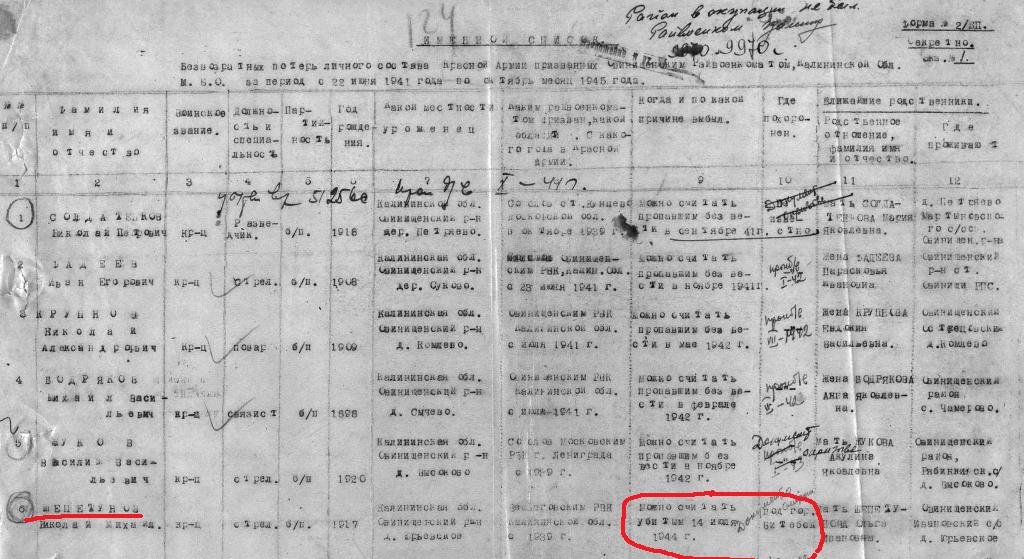 124
Район в окупации не был.
Райвоенком
9970.
Форма № 2/БП.
Секретно.
Экз. № 1.
ИМЕННОЙ СПИСОК
Безвозвратных потерь личного состава Красной Армии призванных Овинищенским Райвоенкоматом, Калининской Обл.
М.В.О. за период с 22 июня 1941 года по октябрь месяц 1945 года.
№№ п/п
Фамилия имя и отчество
Воинское звание.
Должность и специальность
Партийность
Год рождения.
Какой местности уроженец
Каким райвоенкоматом призван, какой области. С какого года в Красной Армии.
Когда и по какой причине выбыл.
Где похоронен.
Ближайшие родственники.
Родственное отношение, фамилия имя и отчество.
Где проживают
1 2 3 4 5 6 9 10 11 12
1
СОЛДАТЕНКОВ
Николай Петрович
кр-ц
Разведчик.
б/п.
1918
Калининская обл.
Овинищенский р-н
дер. Петряево.
Московской обл.
в октябре 1939 г.
Можно считать
пропавшим без вести
в сентябре 41г.
Мать СОЛДАТЕНКОВА Мария
Яковлевна.
д. Петряево
Мартыновского с/сов.
Овинищен. р-на
2
ФАДЕЕВ
Иван Егорович
кр-ц
стрел.
б/п.
1908
Калининская обл.
Овинищенский р-н
дер. Суково.
Овинищенским РВК, Калин. обл.
с 23 июня 1941 г.
Можно считать
пропавшим без вести
в ноябре 1941г.
I-42
Жена ФАДЕЕВА
Парасковья
Ивановна
Овинищенский
р-н ст.
Овинищи
3
КРУПНОВ
Николай
Александрович
кр-ц
повар
б/п
1909
Калининская обл.
Овинищенский р-н
д. Комлево.
Овинищенским РВК
Калининской обл.
с июля 1941 г.
Можно считать
пропавшим без вести
в мае 1942 г.
Жена КРУПНОВА
Евдокия
Васильевна.
Овинищенский
д. Комлево
4
БОДРЯКОВ
Михаил Васильевич
кр-ц
связист
б/п
1898
Калининская обл.
Овинищенский р-н
д. Сычево.
Овинищенским РВК
Калининской обл.
с июля 1941 г.
Можно считать
пропавшим без вести
в феврале
1942 г.
Жена БОДРЯКОВА
Анна Яковлевна.
Овинищенский
район.
с. Чамерово.
5
ЖУКОВ
Василий Васильевич
кр-ц
стрел.
б/п
1920
Калининская обл.
Овинищенский р-н
д. Высоково
Московским
РВК г. Ленинграда
с 1939 г.
Можно считать
пропавшим без
вести в ноябре
1942 г.
Мать ЖУКОВА
Акулина
Яковлевна
Овинищенский
район,
д. Высоково.
6
ШЕПЕТУНОВ
Николай Михайл.
кр-ц
стрел.
б/п.
1917
Калининская обл.
Овинищенский р-н
д. Юрьевское
РВК
Калининской обл.
с 1939 г.
Можно считать
убитым 14 июля
1944 г.
под гор.
Витебск
Мать ШЕПЕТУНОВА Ольга
Ивановна.
Овинищенский
Ивановский с/с
д. Юрьевское